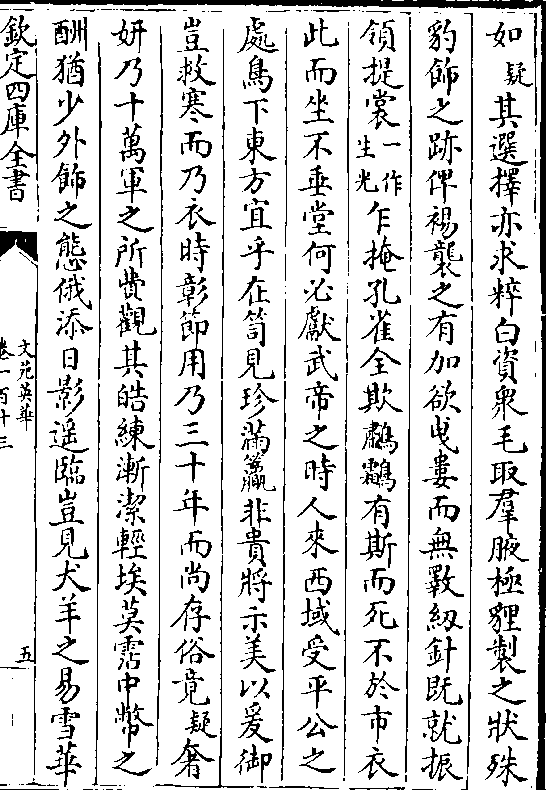 如疑其選擇亦求粹白資衆毛取羣腋極貍製之狀殊
豹飾之跡俾裼襲之有加欲曵婁而無斁紉針既就振
領提裳一作生光乍掩孔雀全欺鸕鸘有斯而死不於市衣
此而坐不垂堂何必獻武帝之時人來西域受平公之
處鳥下東方宜乎在笥見珍滿籯非貴將示美以爰御
豈救寒而乃衣時彰節用乃三十年而尚存俗竟疑奢
妍乃十萬軍之所費觀其皓練漸潔輕埃莫霑中幣之
酬猶少外飾之態俄添日影遥臨豈見犬羊之易雪華
欽定四庫全書
文苑英華
卷一百十三
五